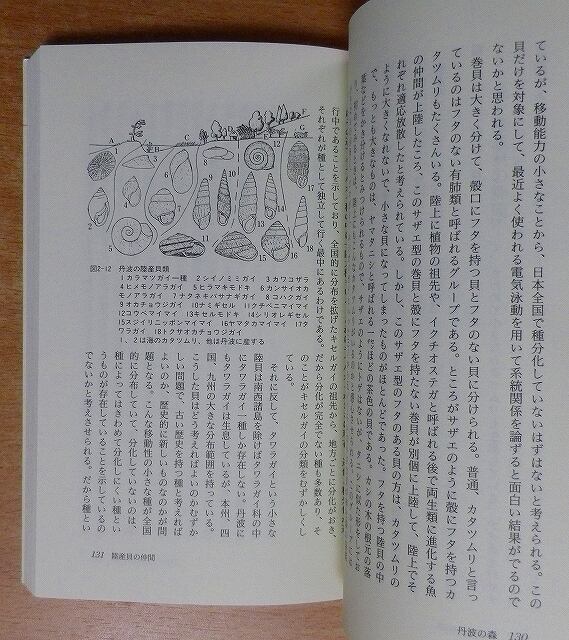 ているが、移動能力の小さなことから、日本全国で種分化していないはずはないと考えられる。この
貝だけを対象にして、最近よく使われる電気泳動を用いて系統関係を論ずると面白い結果がでるので
ないかと思われる。
巻貝は大きく分けて、殻口にフタを持つ貝とフタのない貝に分けられる。普通、カタツムリと言っ
ているのはフタのない有肺類と呼ばれるグループである。ところがサザエのように殻にフタを持つカ
タツムリもたくさんいる。陸上に植物の祖先や、イクチオステガと呼ばれる後で両生類に進化する魚
の仲間が上陸したころ、このサザエ型の巻貝と殻にフタを持たない巻貝が別個に上陸して、陸上でそ
れぞれ適応放散したと考えられている。しかし、このサザエ型のフタのある貝の方は、カタツムリの
ように大きくなれないで、小さな貝になってしまったものがほとんどであった。フタを持つ陸貝の中
で、もっとも大きなものは、ヤマタニシと呼ばれる
ほどの茶色の貝である。カシの木の根元の落
丹波の森 130
行中であることを示しており、全国的に分布を拡げたキセルガイの祖先から、地方ごとに分化がおき、
それぞれが種として独立して行く最中にあるわけである。
A B C D E F G
1 2 3 4 5 6 7 8 9 10 11 12 13 14 15 16 17 18
図2-12 丹波の陸産貝類
1カラマツガイ一種 2シイノミミガイ 3カワコザラ
4ヒメモノアラガイ 5ヒラマキモドキ 6カンサイオカ
モノアラガイ 7ナタネキバサナギガイ 8コハクガイ
9オカチョウジガイ 10ナミギセル 11クチベニマイマイ
12コウベマイマイ 13キセルモドキ 14シリオレギセル
15スジイリニッポンマイマイ 16ヤマタカマイマイ 17タ
ワラガイ 18トクサオカチョウジガイ
1、2は海のカタツムリ、他は丹波に産する
だから分化が完全でない種も多数あり、そ
のことがキセルガイの分類をむずかしくし
ている。
それに反して、タワラガイという小さな
陸貝は南西諸島を除けばタワラガイ科の中
にタワラガイ一種しか存在しない。丹波に
もタワラガイは生息しているが、本州、四
国、九州の大きな分布範囲を持っている。
こうした貝はどう考えればよいのかむずか
しい問題で、古い歴史を持つ種と考えれば
よいのか、歴史的に新しいものなのかが問
題となる。こんな移動性の小さな種が全国
的に分布していて、分化していないのは、
種によってはきわめて分化しにくい種とい
うものが存在していることを示しているの
でないかと考えさせられる。だから種とい
131 陸産貝の仲間